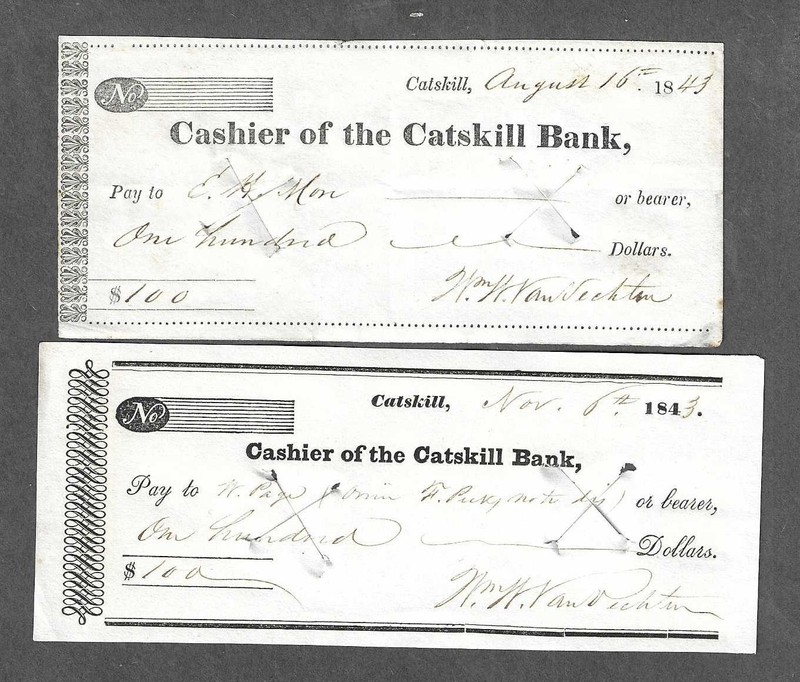 Catskill, August 16th 1843
No
Cashier of the Catskill Bank,
Pay to E. H. Mon or bearer,
One hundred Dollars.
$100
Wm. H. Van Vechten
Catskill, Nov. 6th 1843.
No
Cashier of the Catskill Bank,
Pay to W. Page ( F. note dis) or bearer,
One hundred Dollars.
$100
Wm. H. Van Vechten